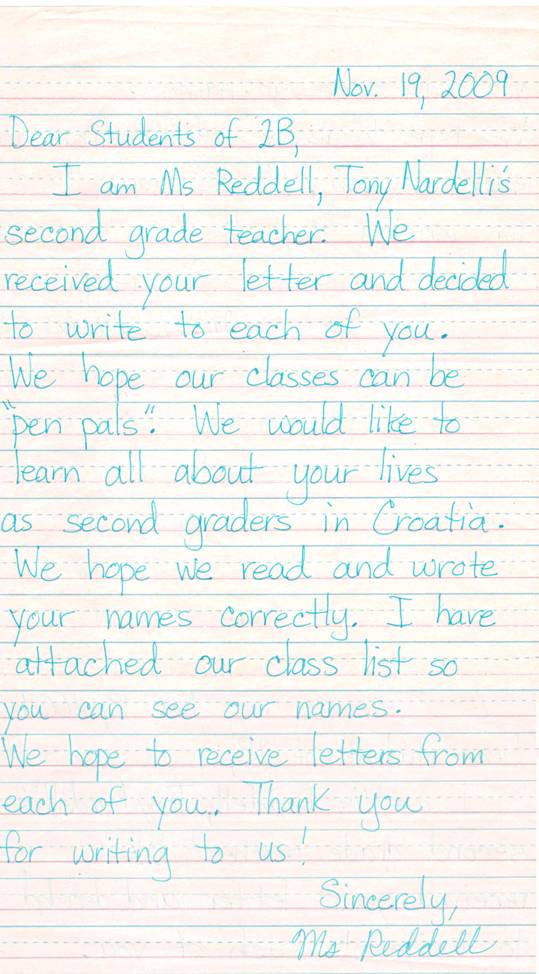 Nov. 19, 2009
Dear Students of 2B,
I am Ms Reddell, Tony Nardelli's
second grade teacher. We
received your letter and decided
to write to each of you.
We hope our classes can be
"pen pals". We would like to
learn all about your lives
as second graders in Croatia.
We hope we read and wrote
your names correctly. I have
attached our class list so
you can see our names.
We hope to receive letters from
each of you.. Thank you
for writing to us!
Sincerely,
Ms Reddell